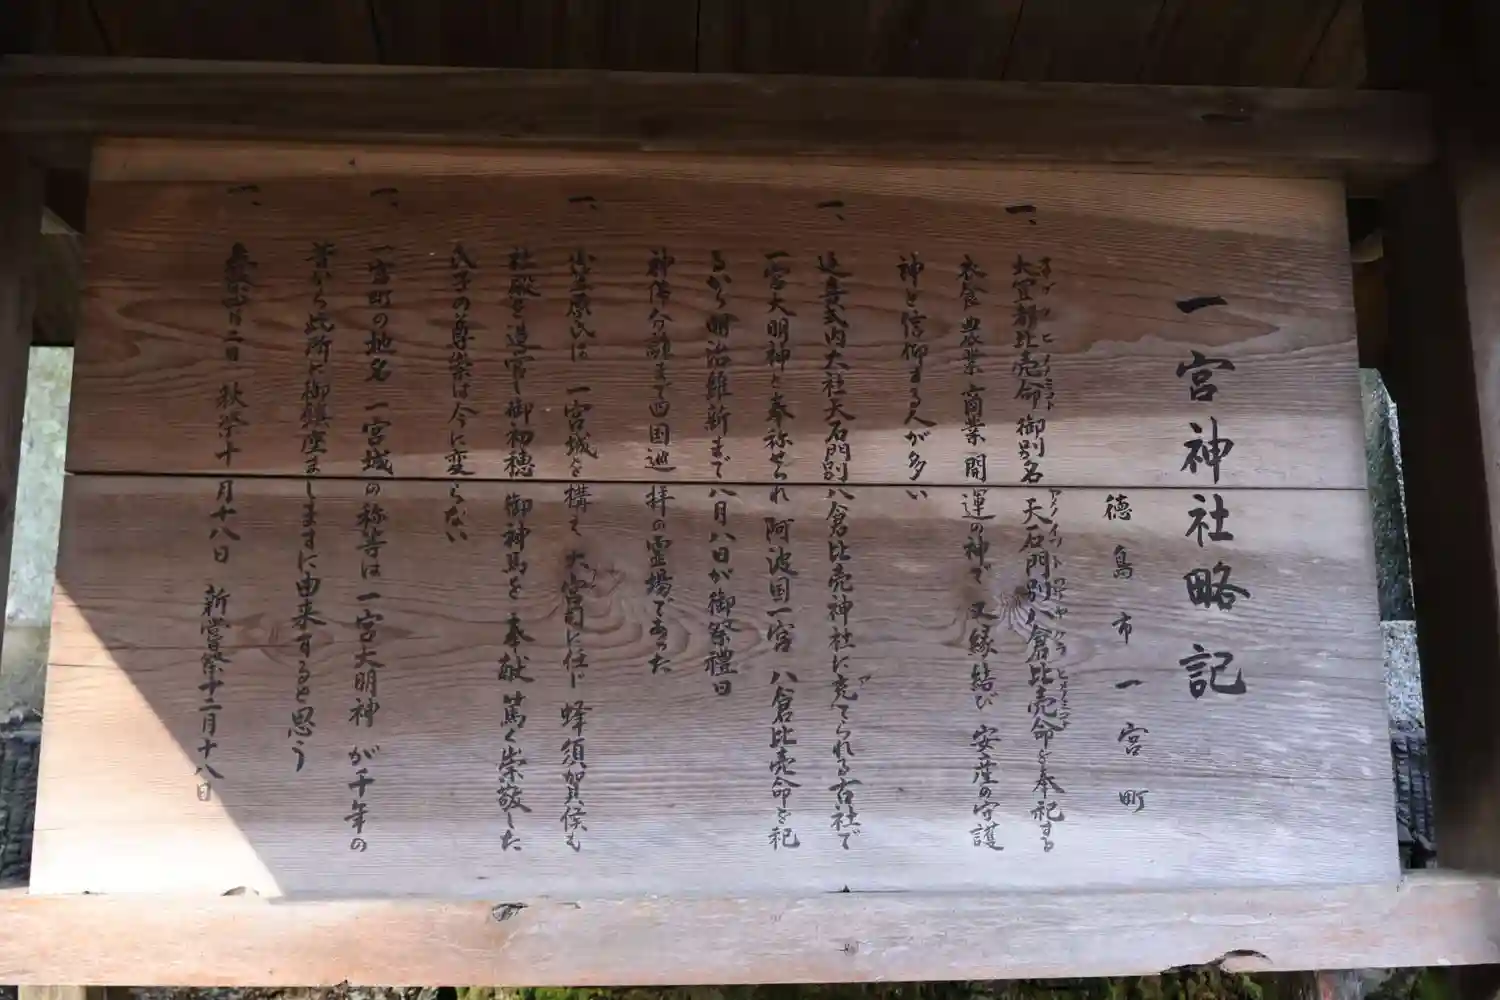 一宮神社略記
徳島市一宮町
一、大宜都比売命 御別名 天石門別八倉比売命を奉祀する
衣食 農業 商業 開運の神で 又縁結び 安産の守護
神と信仰する人が多い
一、延喜式内大社天石門別八倉比売神社に充てられる古社で
一宮大明神と奉称せられ 阿波国一宮 八倉比売命を祀
るから明治維新まで八月八日が御祭禮日
神佛分離まで四国巡拝の霊場であった
一、小笠原氏は 一宮城を構え 大宮司に任じ 蜂須賀侯も
社殿を造営し御初穂 御神馬を奉献 篤く崇敬した
氏子の尊崇は今に変らない
一、一宮町の地名 一宮城の称等は 一宮大明神 が千年の
昔から此所に御鎮座ましますに由来すると思う
一、二日 秋祭十月十八日 新嘗祭十二月十八日